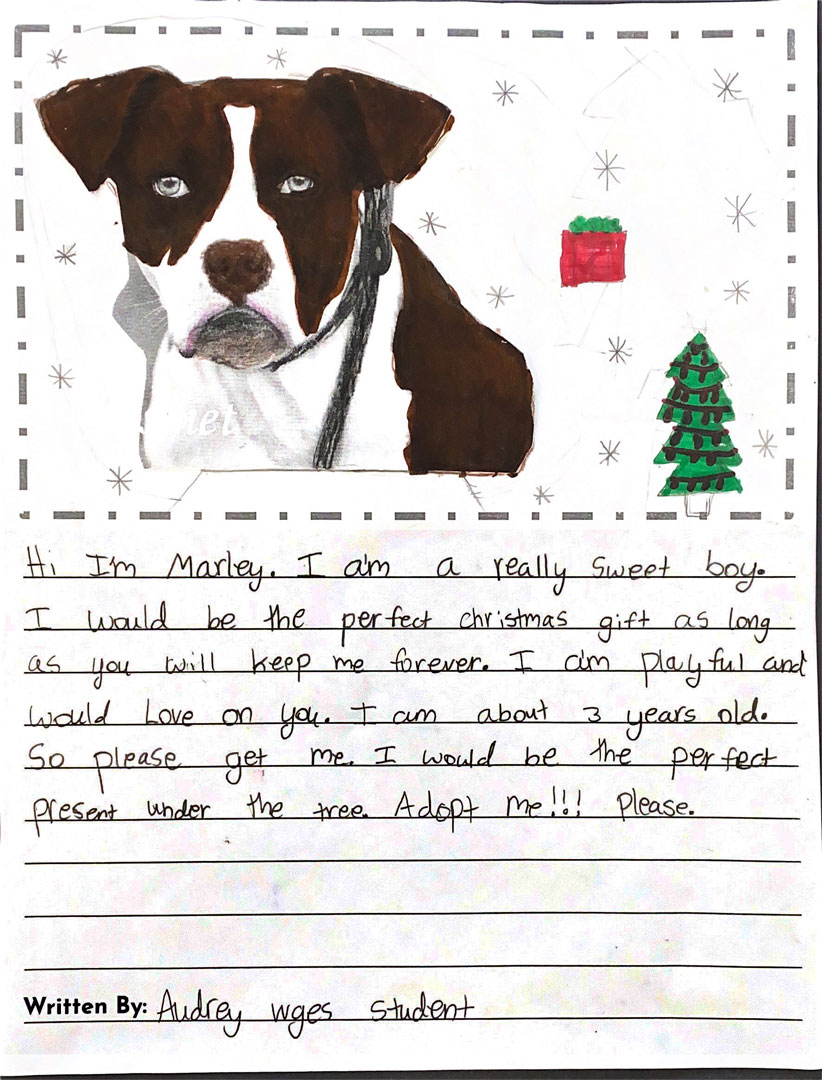 Hi I'm Marley. I am a really sweet boy.
I would be the perfect christmas gift as long
as you will keep me forever. I am playful and
would Love on you. I am about 3 years old.
So please get me. I would be the perfect
present under the tree. Adopt me!!! Please.
Written By: Audrey wges student